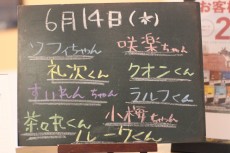 6月14日(水)
ソフィちゃん 咲楽ちゃん
礼次くん クオンくん
すいれんちゃん ラルフくん
茶々丸くん 小梅ちゃん
ルークくん